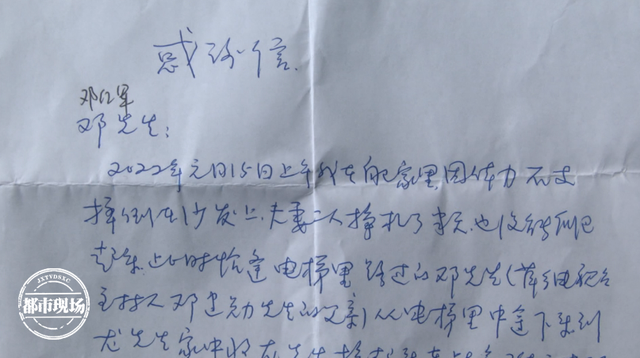 感谢信
邓江军
邓先生:
2022年元月15日上午我在自家里因体力不支
摔倒在沙发上,夫妻二人挣扎了半天也没能爬
起来.此时恰逢电梯里路过的邓先生(萍乡电视台
主持人邓建勋先生的父亲)从电梯里中途下来到
龙先生家中
JXTVDSXC
都市现场